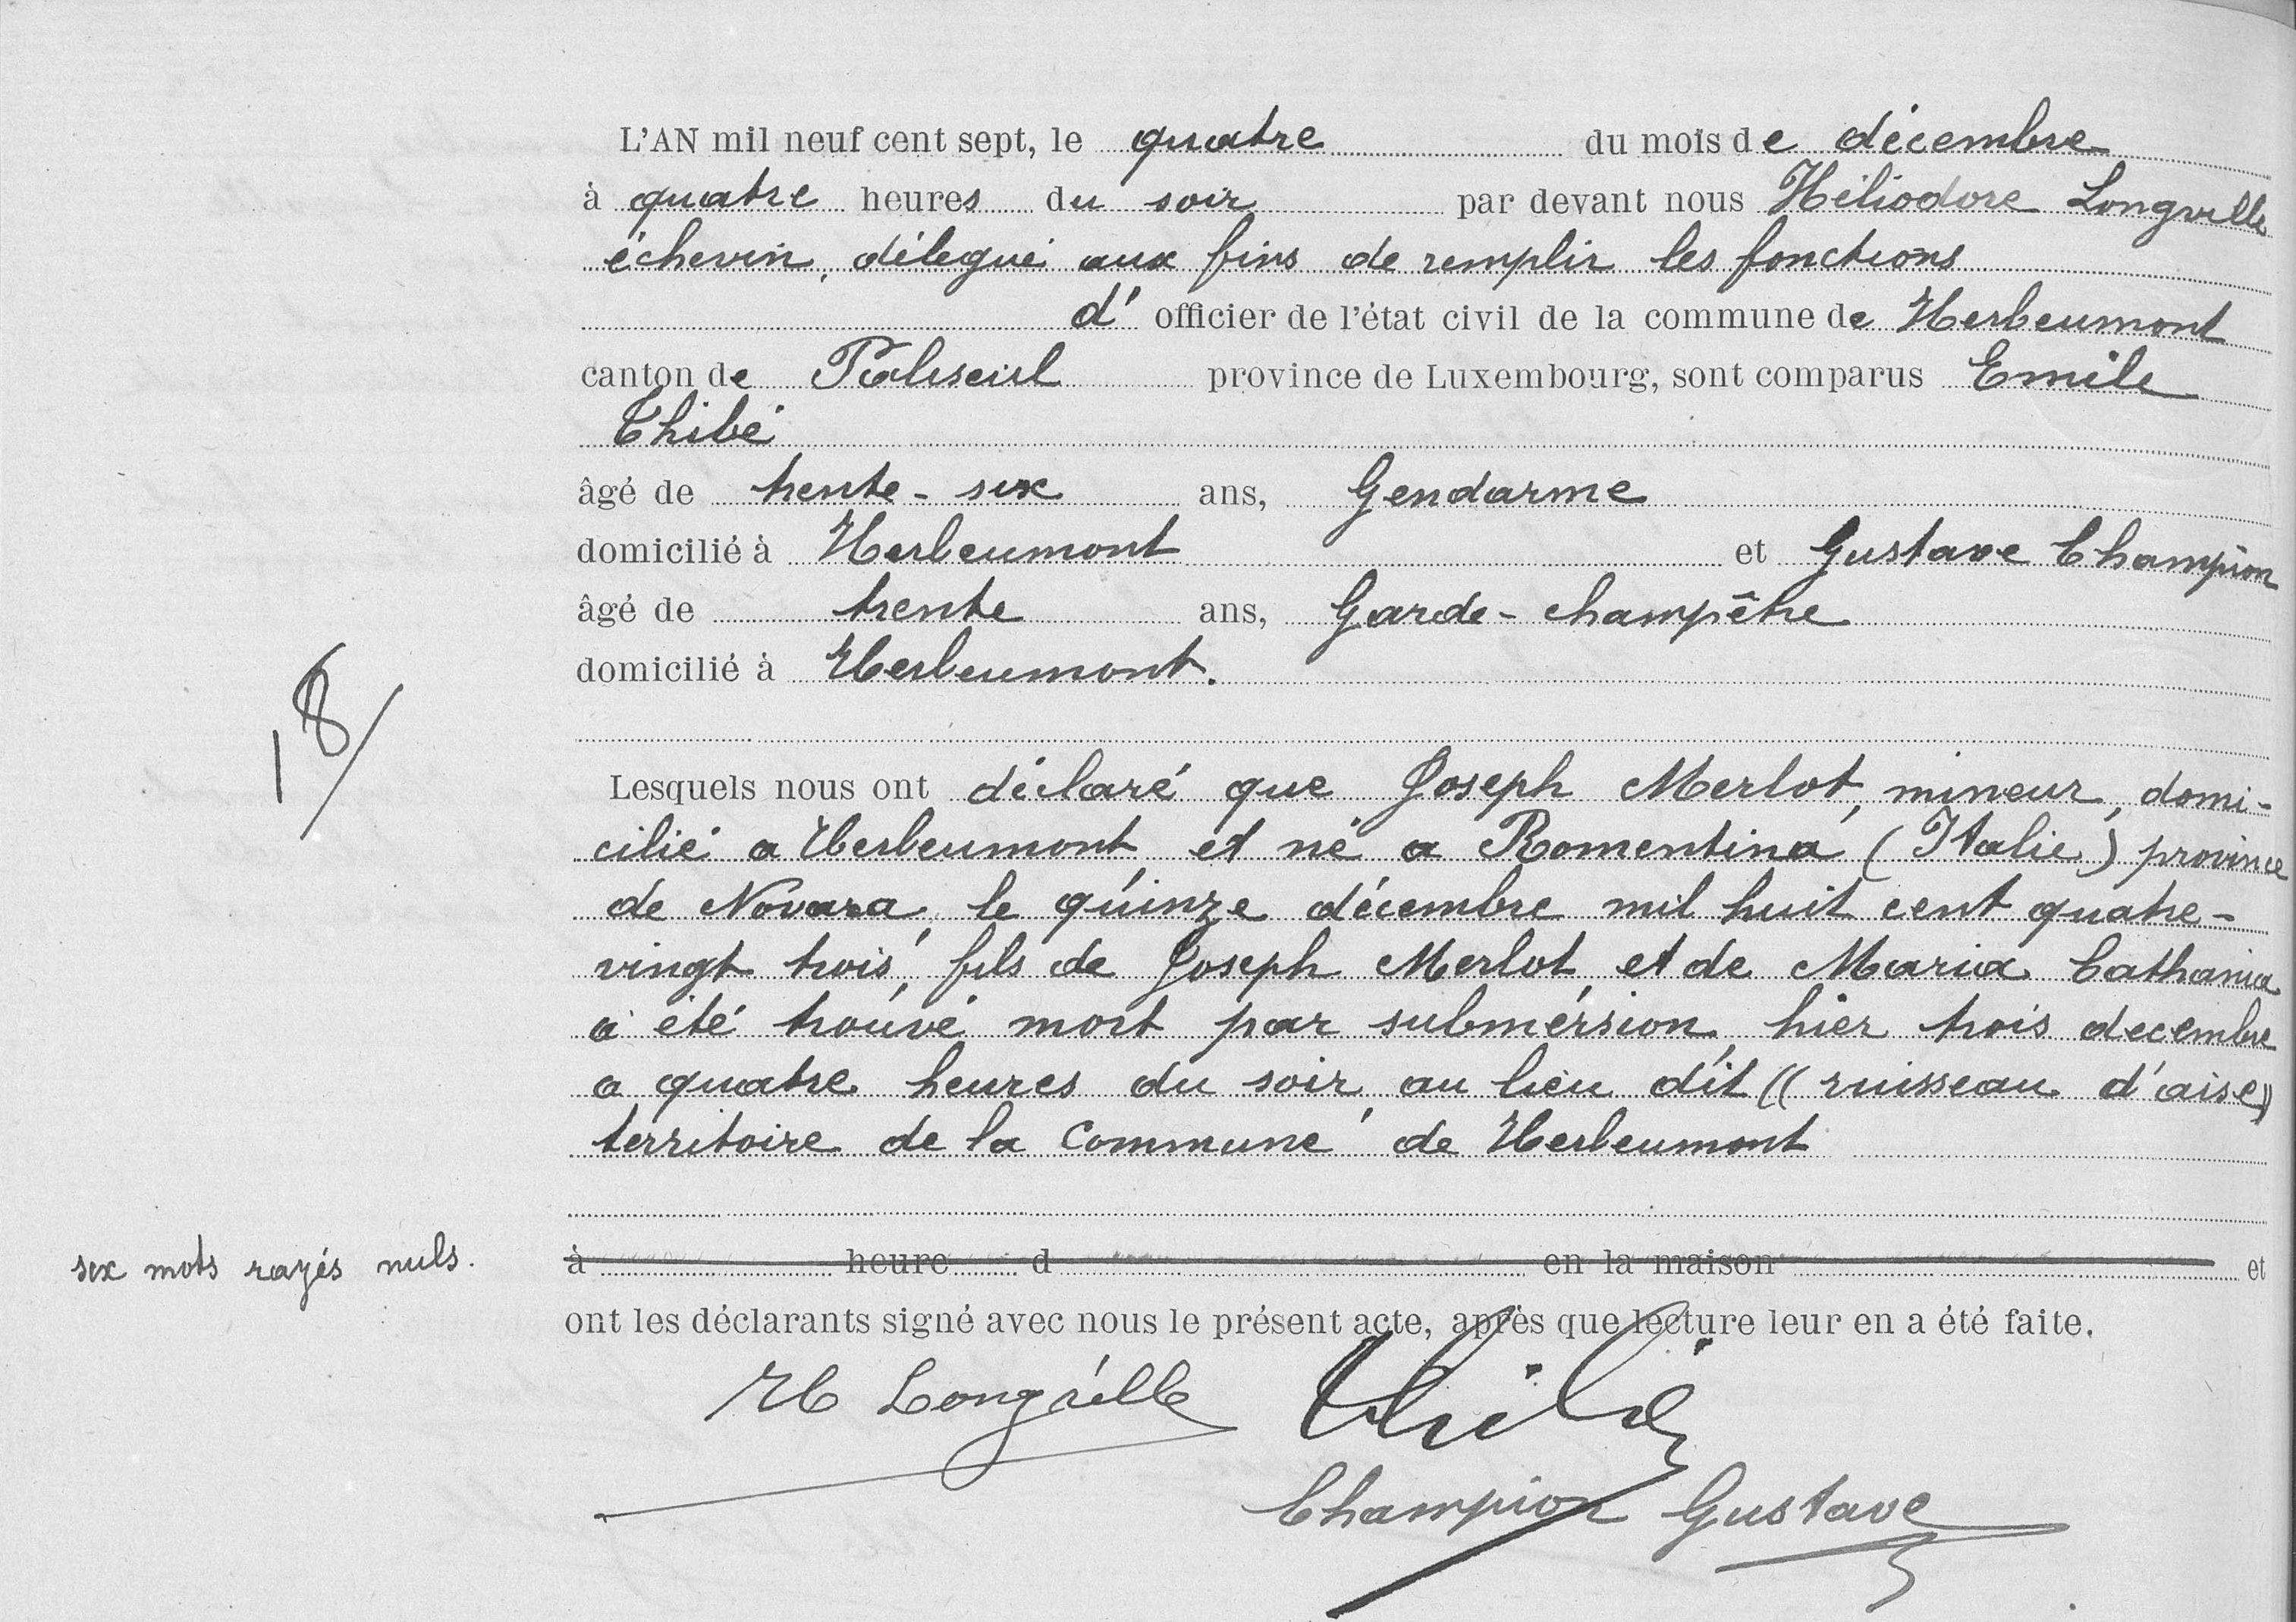 L'AN mil neuf cent sept, le quatre du mois de décembre
à quatre heures du soir par devant nous Héliodore Longville
échevin, délégué aux fins de remplir les fonctions
d' officier de l'état civil de la commune de Herbeumont
canton de Paliseul province de Luxembourg, sont comparus Emile
Thibé
âgé de trente-six ans, Gendarme
domicilié à Herbeumont et Gustave Champion
âgé de trente ans, Garde-champêtre
domicilié à Herbeumont.
18/
Lesquels nous ont déclaré que Joseph Merlot, mineur, domi-
cilié a Herbeumont, et né a Romentina, (Italie) province
de Novara, le quinze décembre mil huit cent quatre-
vingt trois, fils de Joseph Merlot, et de Maria Cathania
a été trouvé mort par submérsion, hier trois decembre
a quatre heures du soir, au lieu dit ((ruisseau d'aise))
territoire de la Commune de Herbeumont
six mots rayés nuls.
à heure d en la maison et
ont les déclarants signé avec nous le présent acte, après que lecture leur en a été faite.
H Longville Thibé
Champion Gustave